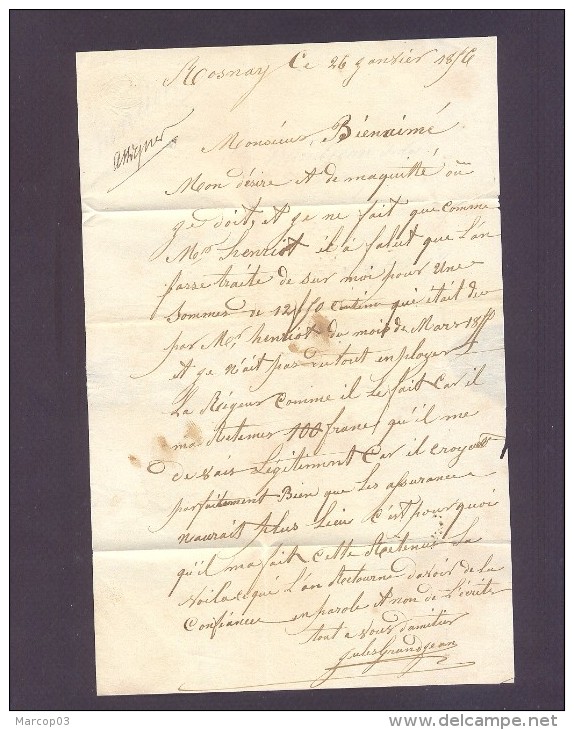 Rosnay Ce 26 Janvier 1856
assigner
Monsieur, Bienaimé
Mon désire et de maquitté où
ge doit, et ge ne fait que comme
Mr henriot il à falut que l'an
fasse traite de sur moi pour une
Sommes de 12 f 50 Centime qui était du
par Mr henriot du mois de Mars 1850
et ge n'ait pas du tout enployer
La Rigeur Comme il le fait Car il
ma Retenus 100 franc qu'il me
devais Légitiment Car il croyait
parfaitement Bien que Les assurance
naurait plus Lieu C'est pourquoi
qu'il ma fait Cette Retenus La
voila ce qué L'an Retourne davoir de la
Confiance en parole et non de L'écrite
tout a vous d'amitier
Jules Grandjean
Marcop03
www.delcampe.net